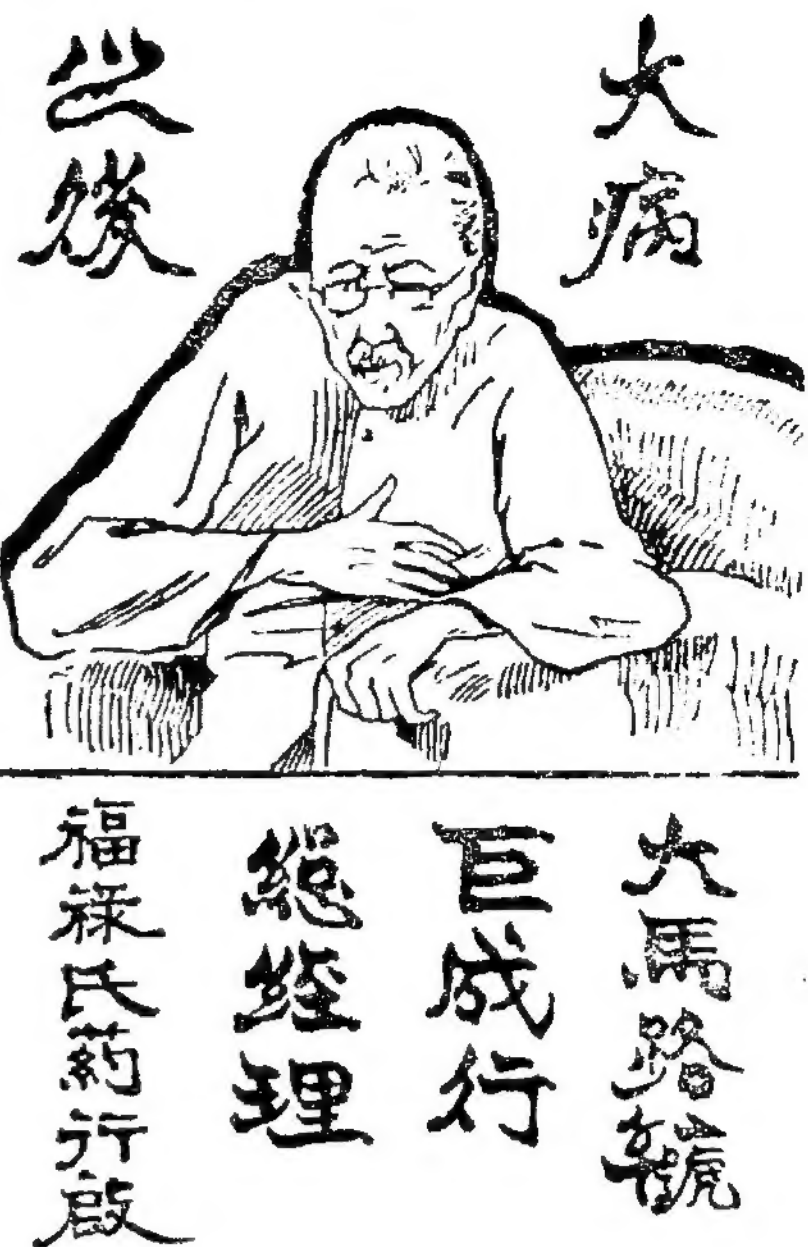 大病
之後
大馬路號
巨成行
總經理
福祿氏药行啟